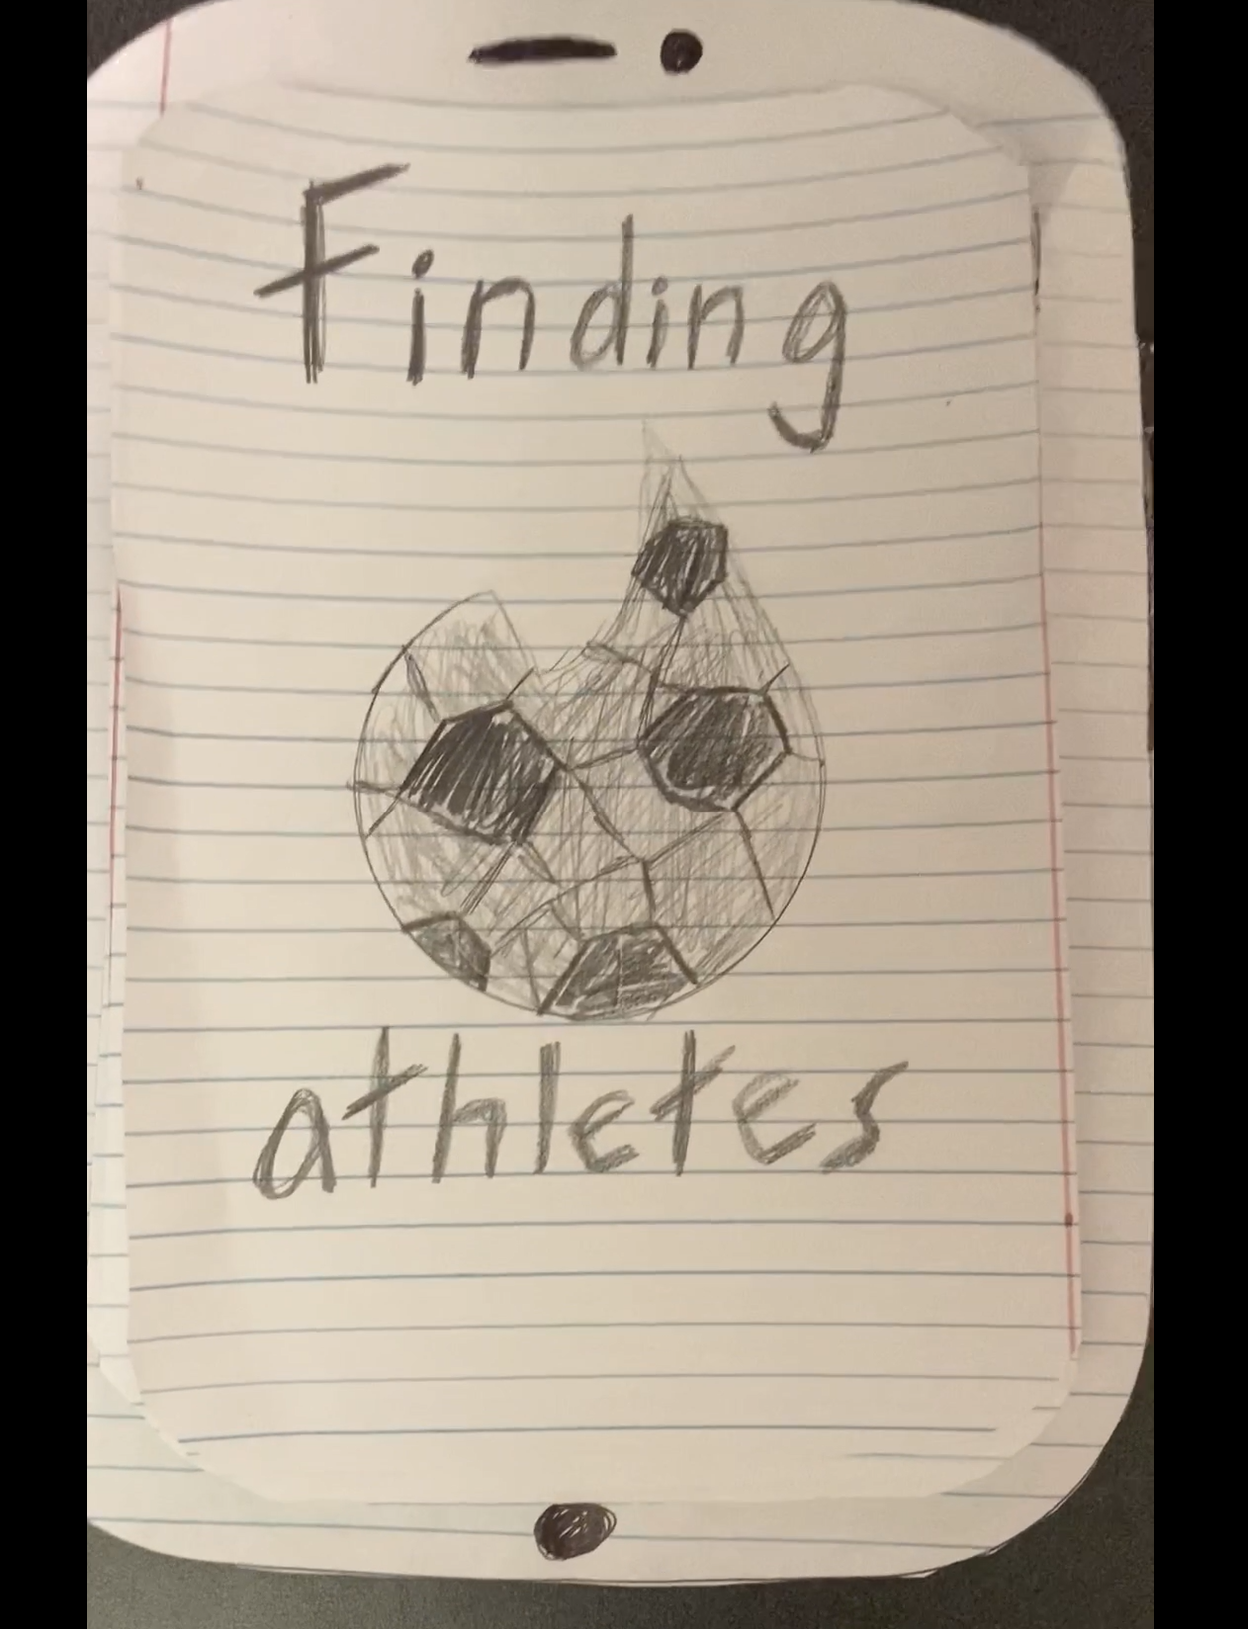 Finding
athletes